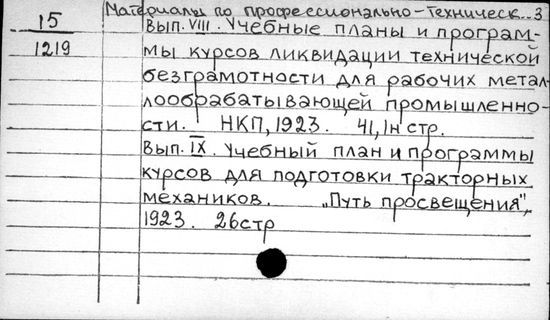 Материалы по профессионально-техническ.. 3
15
1219
Вып. VIII. Учебные планы и програм-
мы курсов ликвидации технической
безграмотности для рабочих метал-
лообрабатывающей промышленно-
сти. НКП, 1923. 41, 1н стр.
Вып. IX. Учебный план и программы
курсов для подготовки тракторных
механиков. „Путь просвещения",
1923. 26стр